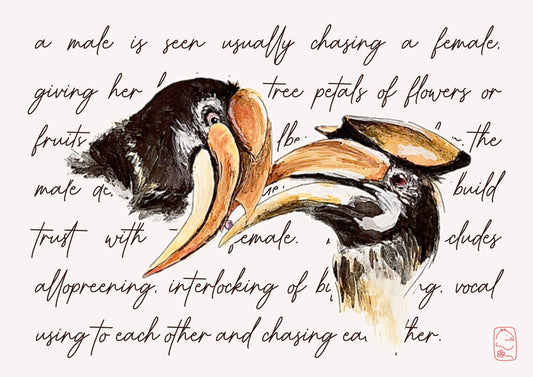 a male is seen usually chasing a female,
giving her tree petals of flowers or
fruits the
male build
trust with female.
allopreening, interlocking of vocal
using to each other and chasing